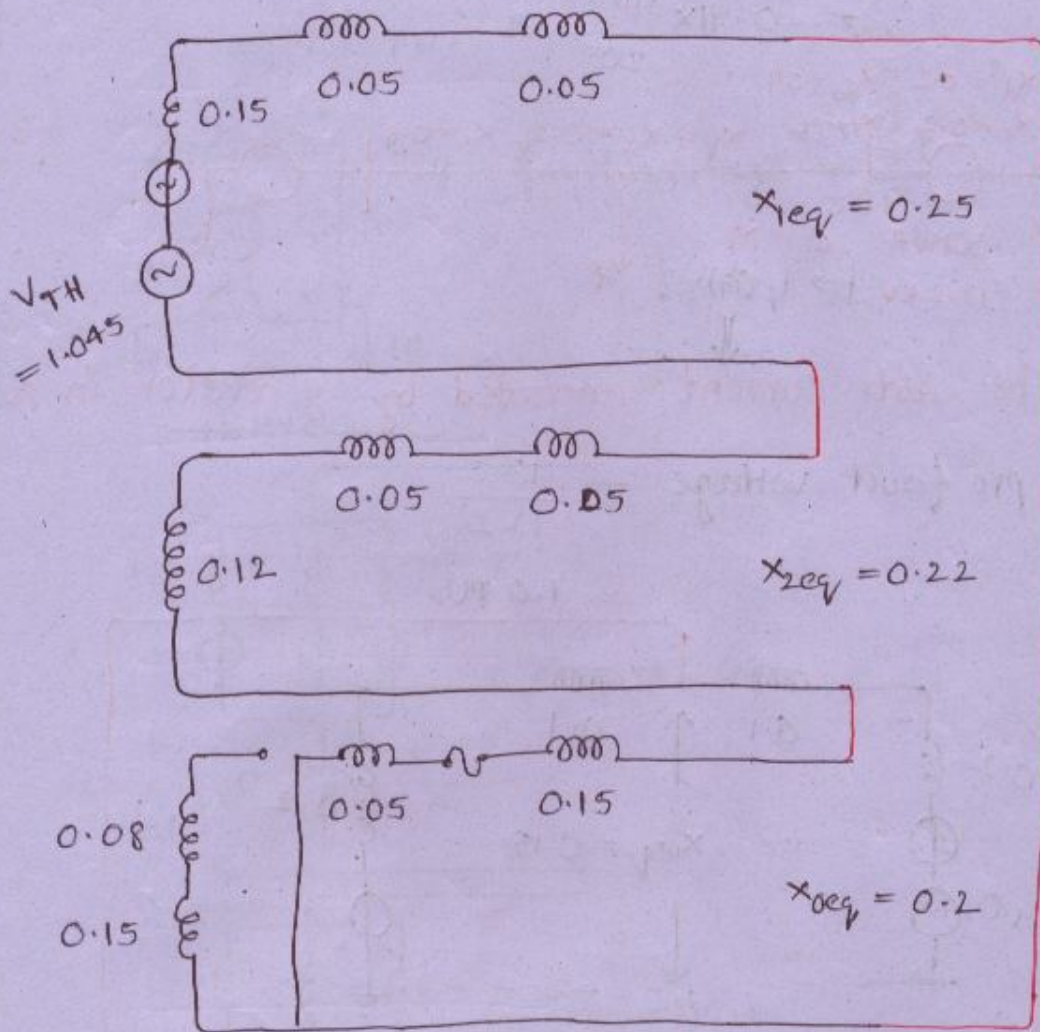 0.05 0.05
0.15
X1eq = 0.25
VTH
= 1.045
0.05 0.05
0.12
X2eq = 0.22
0.05 0.15
0.08
0.15
X0eq = 0.2